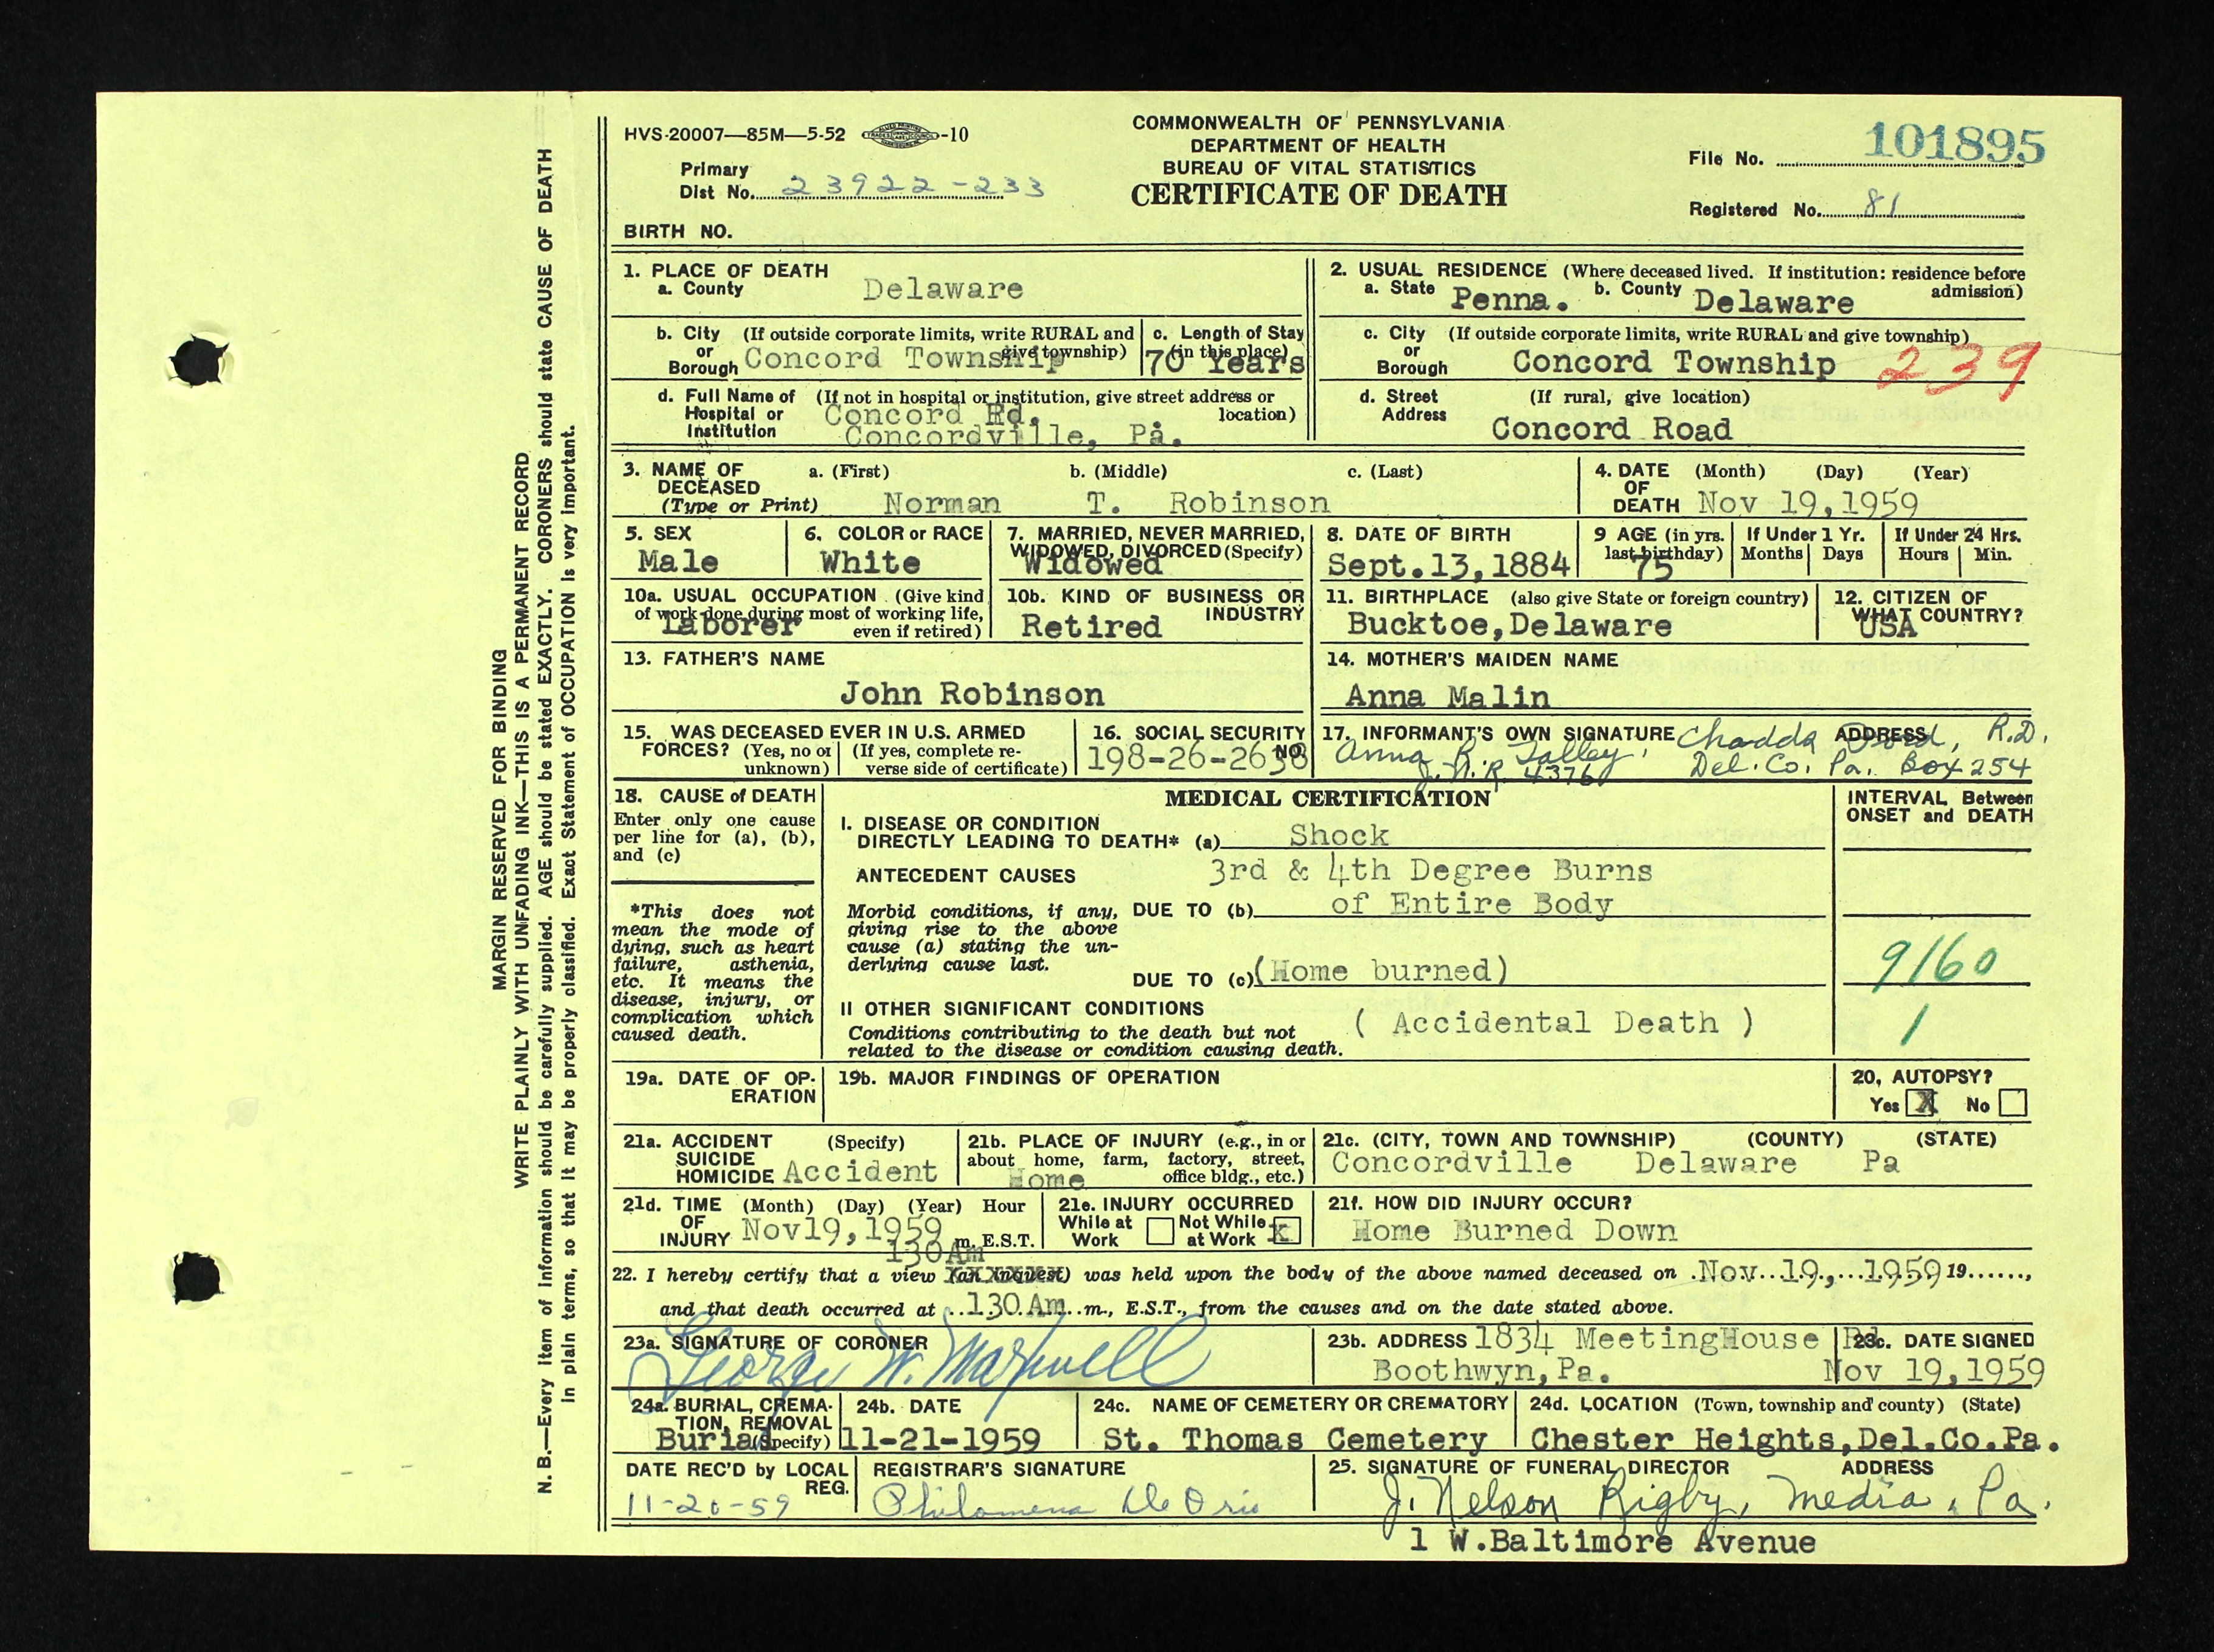 HVS-20007—85M—5-52 -10
COMMONWEALTH OF PENNSYLVANIA
DEPARTMENT OF HEALTH
BUREAU OF VITAL STATISTICS
CERTIFICATE OF DEATH
Primary
Dist No. 23922-233
File No. 101895
Registered No. 81
BIRTH NO.
1. PLACE OF DEATH
a. County Delaware
2. USUAL RESIDENCE (Where deceased lived. If institution: residence before
admission)
a. State Penna. b. County Delaware
b. City (If outside corporate limits, write RURAL and
or give township)
Borough Concord Township
c. Length of Stay
(in this place)
70 Years
c. City (If outside corporate limits, write RURAL and give township)
or
Borough Concord Township 239
d. Full Name of (If not in hospital or institution, give street address or
Hospital or location)
Institution
Concord Rd.
Concordville, Pa.
d. Street (If rural, give location)
Address
Concord Road
3. NAME OF a. (First) b. (Middle) c. (Last)
DECEASED
(Type or Print) Norman T. Robinson
4. DATE (Month) (Day) (Year)
OF
DEATH Nov 19,1959
5. SEX
Male
6. COLOR or RACE
White
7. MARRIED, NEVER MARRIED,
WIDOWED, DIVORCED (Specify)
Widowed
8. DATE OF BIRTH
Sept.13,1884
9 AGE (in yrs.
last birthday)
75
If Under 1 Yr.
Months Days
If Under 24 Hrs.
Hours Min.
10a. USUAL OCCUPATION (Give kind
of work done during most of working life,
even if retired)
Laborer
10b. KIND OF BUSINESS OR
INDUSTRY
Retired
11. BIRTHPLACE (also give State or foreign country)
Bucktoe,Delaware
12. CITIZEN OF
WHAT COUNTRY?
USA
13. FATHER'S NAME
John Robinson
14. MOTHER'S MAIDEN NAME
Anna Malin
15. WAS DECEASED EVER IN U.S. ARMED
FORCES? (Yes, no or (If yes, complete re-
unknown) verse side of certificate)
16. SOCIAL SECURITY
NO.
198-26-2638
17. INFORMANT'S OWN SIGNATURE ADDRESS
Anna R. Talley, Chadds Ford, R.D.
4376 Del. Co. Pa. Box 254
18. CAUSE of DEATH
Enter only one cause
per line for (a), (b),
and (c)
*This does not
mean the mode of
dying, such as heart
failure, asthenia,
etc. It means the
disease, injury, or
complication which
caused death.
MEDICAL CERTIFICATION
I. DISEASE OR CONDITION
DIRECTLY LEADING TO DEATH* (a) Shock
ANTECEDENT CAUSES 3rd & 4th Degree Burns
Morbid conditions, if any, DUE TO (b) of Entire Body
giving rise to the above
cause (a) stating the un-
derlying cause last.
DUE TO (c) (Home burned)
II OTHER SIGNIFICANT CONDITIONS
Conditions contributing to the death but not
related to the disease or condition causing death.
( Accidental Death )
INTERVAL Between
ONSET and DEATH
9160
1
19a. DATE OF OP-
ERATION
19b. MAJOR FINDINGS OF OPERATION
20, AUTOPSY?
Yes X No
21a. ACCIDENT (Specify)
SUICIDE
HOMICIDE Accident
21b. PLACE OF INJURY (e.g., in or
about home, farm, factory, street,
office bldg., etc.)
Home
21c. (CITY, TOWN AND TOWNSHIP) (COUNTY) (STATE)
Concordville Delaware Pa
21d. TIME (Month) (Day) (Year) Hour
OF
INJURY Nov19,1959
130Am m. E.S.T.
21e. INJURY OCCURRED
While at Not While
Work at Work x
21f. HOW DID INJURY OCCUR?
Home Burned Down
22. I hereby certify that a view (an inquest) was held upon the body of the above named deceased on Nov. 19, 1959 19......,
and that death occurred at 130 Am m., E.S.T., from the causes and on the date stated above.
23a. SIGNATURE OF CORONER
George W. Maxwell
23b. ADDRESS 1834 MeetingHouse Rd.
Boothwyn,Pa.
23c. DATE SIGNED
Nov 19,1959
24a. BURIAL, CREMA-
TION, REMOVAL
(Specify)
Burial
24b. DATE
11-21-1959
24c. NAME OF CEMETERY OR CREMATORY
St. Thomas Cemetery
24d. LOCATION (Town, township and county) (State)
Chester Heights,Del.Co.Pa.
DATE REC'D by LOCAL
REG.
11-20-59
REGISTRAR'S SIGNATURE
Philomena
25. SIGNATURE OF FUNERAL DIRECTOR ADDRESS
J. Nelson Rigby, Media, Pa.
1 W.Baltimore Avenue
MARGIN RESERVED FOR BINDING
WRITE PLAINLY WITH UNFADING INK—THIS IS A PERMANENT RECORD
N. B.—Every item of information should be carefully supplied. AGE should be stated EXACTLY. CORONERS should state CAUSE OF DEATH
in plain terms, so that it may be properly classified. Exact Statement of OCCUPATION is very important.